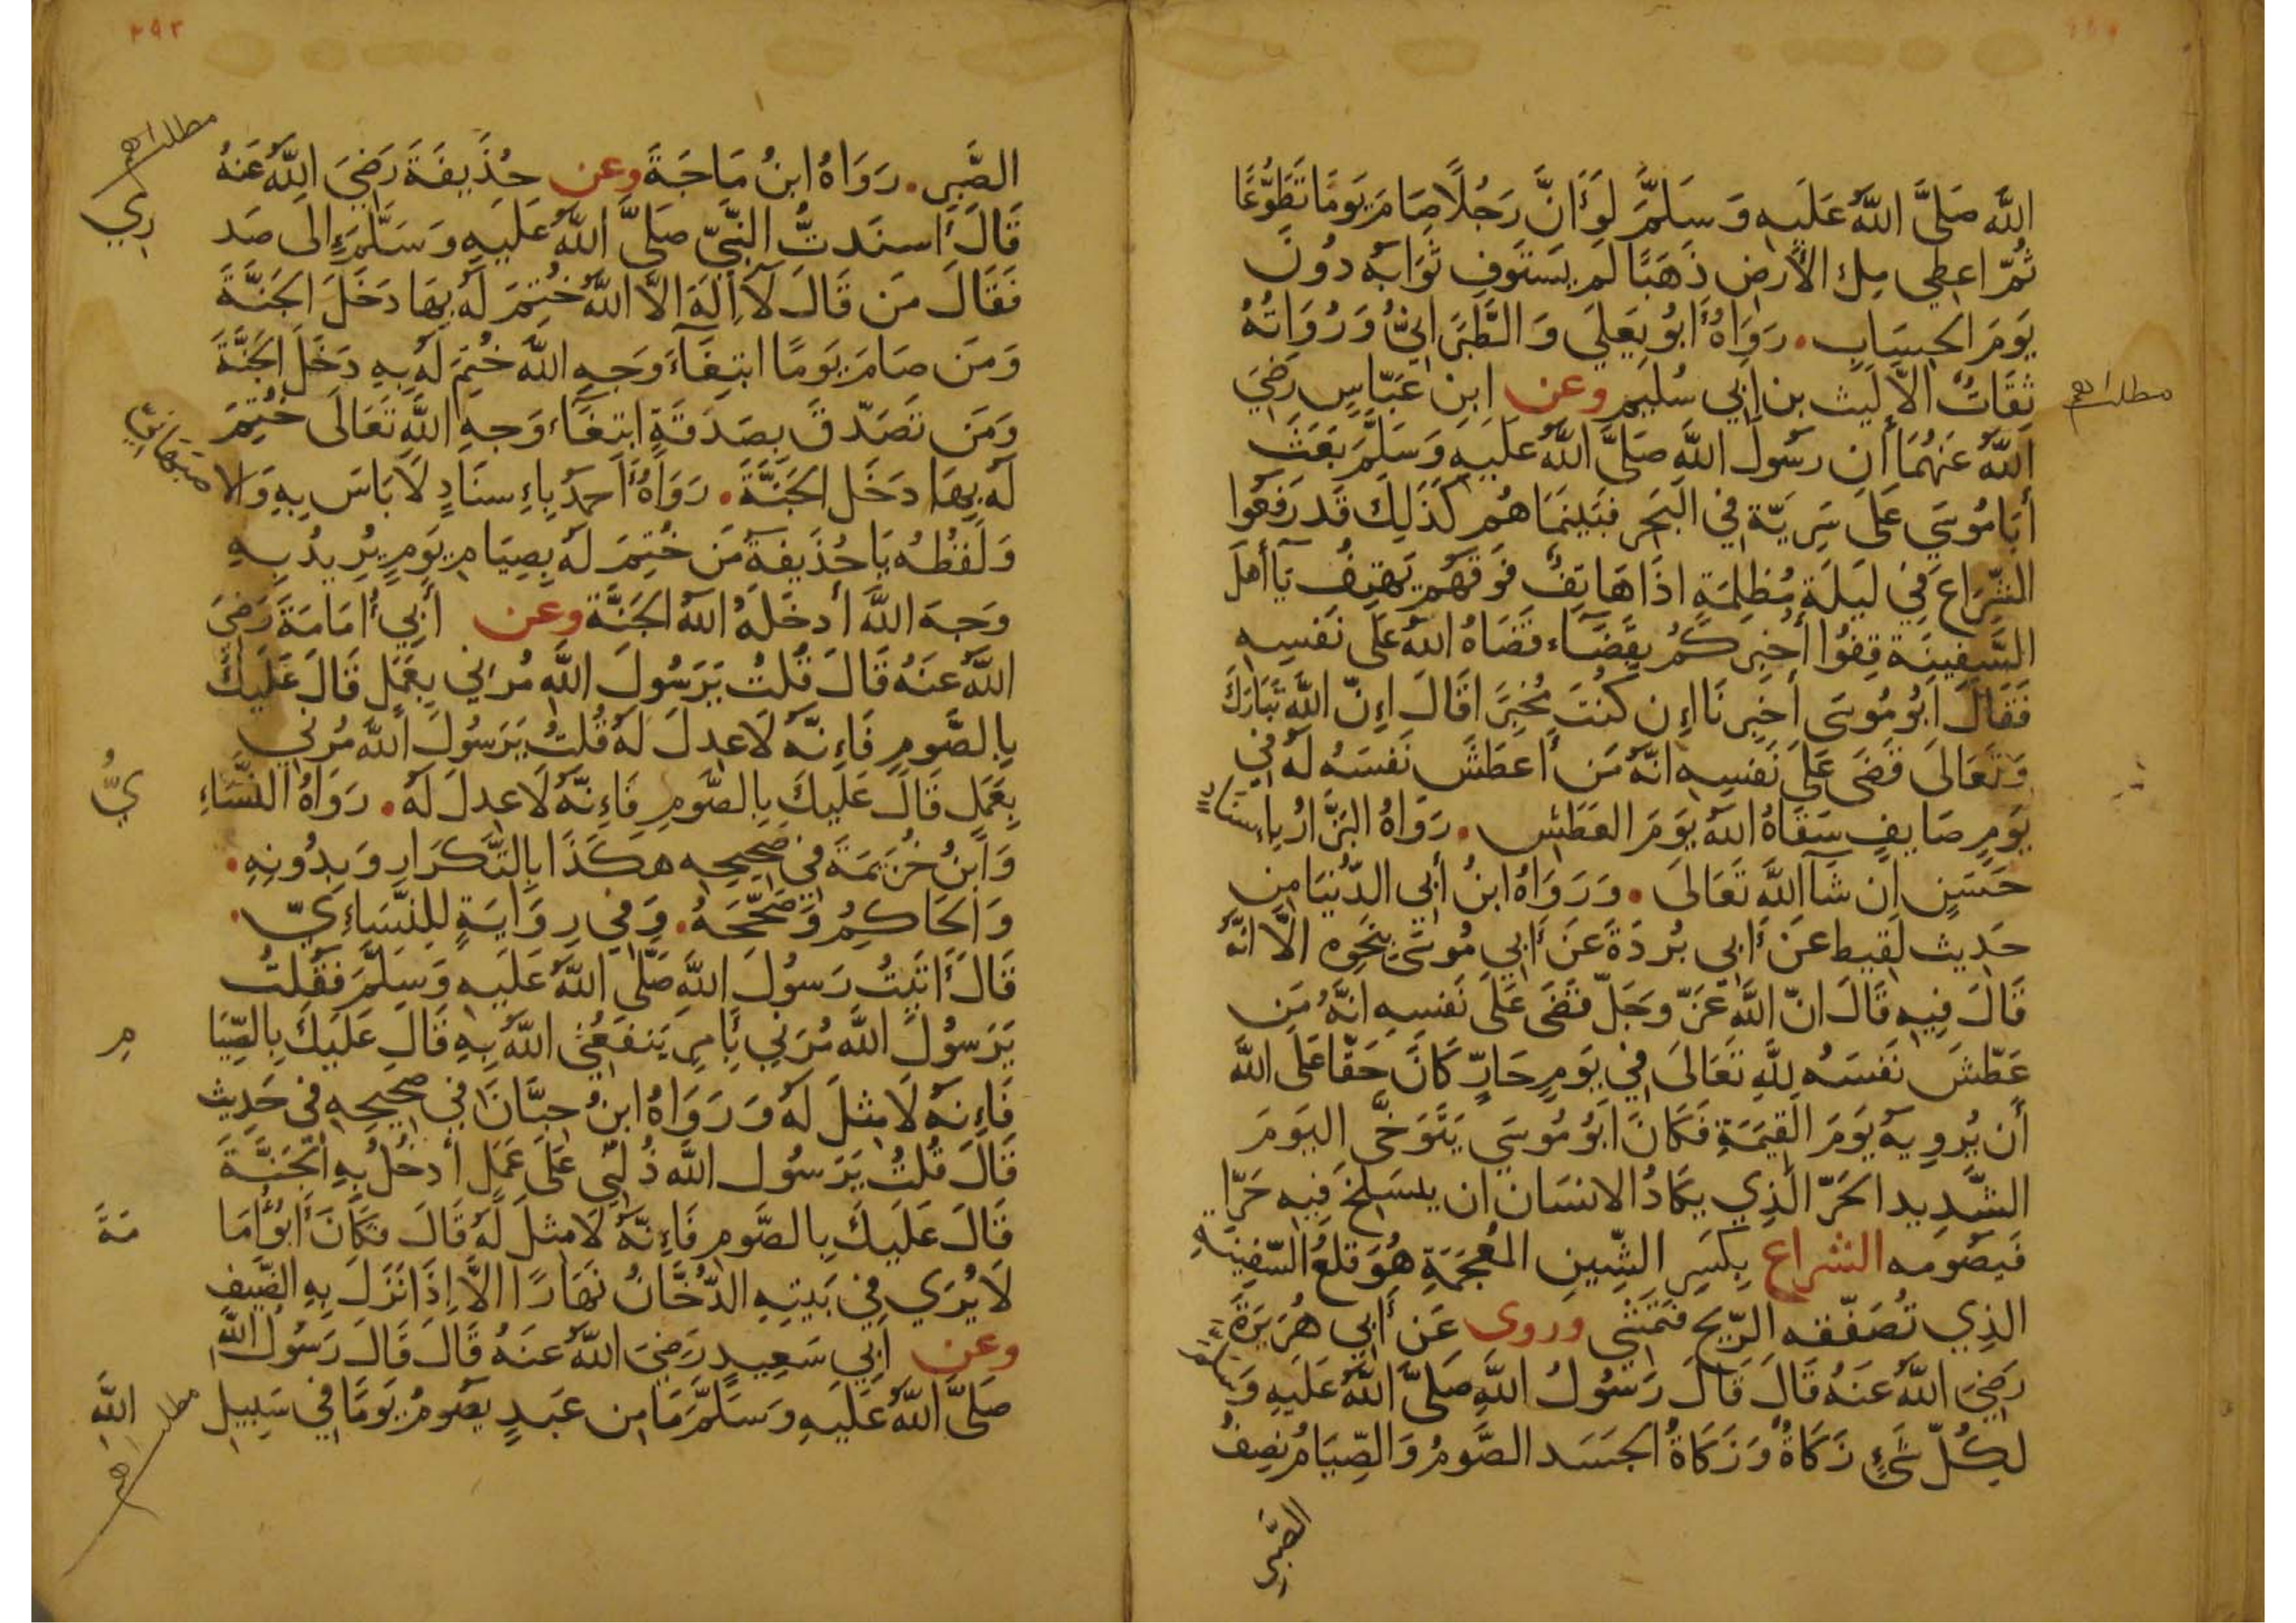 الله صَلَّى اللهُ عَلَيهِ وَسَلَّمَ لَو أَنَّ رَجُلًا صَامَ يَومًا تَطَوُّعًا
ثُمّ اعطِي مِلء الأَرضِ ذَهَبًا لَم يَستَوفِ ثَوَابَهُ دُونَ
يَومَ الحِسَابِ. رَوَاهُ أَبُو يَعلَي وَالطَّبَرَانِيُّ وَرُوَاتُهُ
ثِقَاتٌ الاّ لَيث بن أَبِي سُلَيم وعن ابن عَبّاسٍ رَضِيَ
مطلب اهم
اللهُ عَنهُمَا أَن رسُولَ اللهِ صَلَّى اللهُ عَلَيهِ وَسَلَّمَ بَعَثَ
أَبَا مُوسَي عَلَى سَرِيّة فِي البَحر فَبَينَمَا هُم كَذَلِكَ قَد رَفَعُوا
الشِّرَاع فِي لَيلَةٍ مُظلِمَةٍ اذَا هَاتِفٌ فَوقَهُم يَهتِفُ يَآ أَهلَ
السَّفِينَة قِفُوا أُخبِركُم بِقَضَآء قَضَاهُ اللهُ عَلَى نَفسِهِ
فَقَالَ أَبُو مُوسَى أَخبِرنَا اِن كُنتَ مُخبِرًا قَالَ اِنّ اللهَ تَبَارَكَ
وَتَعَالَى قَضَى عَلَى نَفسِهِ انّهُ مَن أَعطَشَ نَفسَهُ لَهُ فِي
يَومٍ صَايِفٍ سَقَاهُ اللهُ يَومَ العَطَشِ. رَوَاهُ البَزَّارُ بِاِسنَاد
حَسَنٍ اِن شَآ اللهُ تَعَالَى. وَرَوَاهُ ابنُ أَبِي الدُّنيَا مِن
حَدِيث لَقِيط عَن أَبِي بُردَةَ عَن أَبِي مُوسَى بِنَحوِه الَّا انَّهُ
قَالَ فِيهِ قَالَ انّ اللهَ عَزّ وجَلّ قَضَى عَلَى نَفسِهِ انَّهُ مَن
عَطّشَ نَفسَهُ لِلهِ تَعَالَى فِي يَومٍ حَارٍّ كَانَ حَقّا عَلَى اللهِ
أَن يُروِيهُ يَومَ القِيَمَةِ فَكَانَ ابُو مُوسَي يَتَوَخَّى اليَومَ
الشَّدِيد الحَرّ الَّذِي يَكَادُ الانسَان ان يَنسَلِخ فِيهِ حَرّا
فَيصُومه الشراع بِكَسرِ الشِّينِ المُعجَمَةِ هُوَ قلعُ السّفِينَةِ
الذِي تُصَفّقه الرّيح فَتَمشِي وروى عَن أَبِي هُرَيرَةَ
رَضِيَ اللهُ عَنهُ قَالَ قَالَ رَسُولُ اللهِ صَلَّى اللهُ عَلَيهِ وَسلم
لِكُلّ شَيءٍ زَكَاةٌ وَزَكَاةُ الجَسَد الصَّومُ وَالصِّيَامُ نِصفُ
الصَّبرِ
٢٩٢
الصَّبرِ. رَوَاهُ ابنُ مَاجَةَ وعن حُذَيفَةَ رَضِيَ اللهُ عَنهُ
مطلب اهم
قَالَ أَسنَدتُّ النَّبِيّ صَلَّى اللهُ عَلَيهِ وَسَلَّمَ إِلَى صَد
رِي
فَقَالَ مَن قَالَ لَآ اِلَهَ الاّ اللهُ خُتِمَ لَهُ بِهَا دَخَلَ الجَنَّةَ
وَمَن صَامَ يَومًا ابتِغَآءَ وَجهِ اللهِ خُتِمَ لَهُ بِهِ دَخَلَ الجَنَّةَ
وَمَن تَصَدّقَ بِصَدَقَةٍ ابتِغَآءَ وَجهِ اللهِ تَعَالَى خُتِمَ
لَهُ بِهَا دَخَلَ الجَنَّةَ. رَوَاهُ أَحمدُ بِاِسنَادٍ لَا بَاسَ بِهِ وَالا
صبَهَانِيّ
وَلَفظُهُ يَا حُذَيفَةَ مَن خُتِمَ لَهُ بِصِيَامِ يَومٍ يُرِيدُ بِهِ
وَجهَ اللهِ أَدخَلَهُ اللهُ الجَنَّةَ وعن أَبِي أُمَامَةَ رَضِيَ
اللهُ عَنهُ قَالَ قُلتُ يَرَسُولَ اللهِ مُرانِي بِعَمَلٍ قَالَ عَلَيكَ
بِالصَّومِ فَاِنّهُ لَا عِدلَ لَهُ قُلتُ يَرَسُولَ اللهِ مُرنِي
بِعَمَلٍ قَالَ عَلَيكَ بِالصَّومِ فَاِنّهُ لَا عِدلَ لَهُ. رَوَاهُ النَّسَاءِ
يُّ
وَابنُ خُزَيمَةَ فِي صَحِيحِهِ هكَذَا بِالتَّكرَارِ وَبِدُونِهِ.
وَالحَاكِمُ وَصَحَّحَهُ. وَفِي رِوَايَةٍ لِلنَّسَاءِيّ.
قَالَ أَتَيتُ رَسُولَ اللهِ صَلَّى اللهُ عَلَيهِ وَسَلَّمَ فَقُلتُ
يَرَسُولَ اللهِ مُرنِي بِأَمرٍ يَنفَعُنِي اللهُ بِهِ قَالَ عَلَيكَ بِالصِّيَا
مِ
فَاِنهُ لَا مِثلَ لَهُ وَرَوَاهُ ابنُ حِبَّانَ فِي صَحِيحِهِ فِي حَدِيث
قَالَ قُلتُ يَرَسُولَ اللهِ دُلَّنِي عَلَى عَمَلٍ أَدخُلُ بِهِ الجَنَّةَ
قَالَ عَلَيكَ بِالصَّومِ فَاِنّهُ لَا مِثلَ لَهُ قَالَ فَكَانَ أَبُو أُمَا
مَةَ
لَا يُرَي فِي بَيتِهِ الدُّخَّانُ نَهَارًا الاَّ اِذَا نَزَلَ بِهِ الضَّيفِ
وعن أَبِي سَعِيدٍ رَضِيَ اللهُ عَنهُ قَالَ قَالَ رَسُولُ اللهِ
صَلَّى اللهُ عَلَيهِ وَسَلَّمَ مَا مِن عَبدٍ يَصُومُ يَومًا فِي سَبِيلِ
اللهِ
مطلب اهم